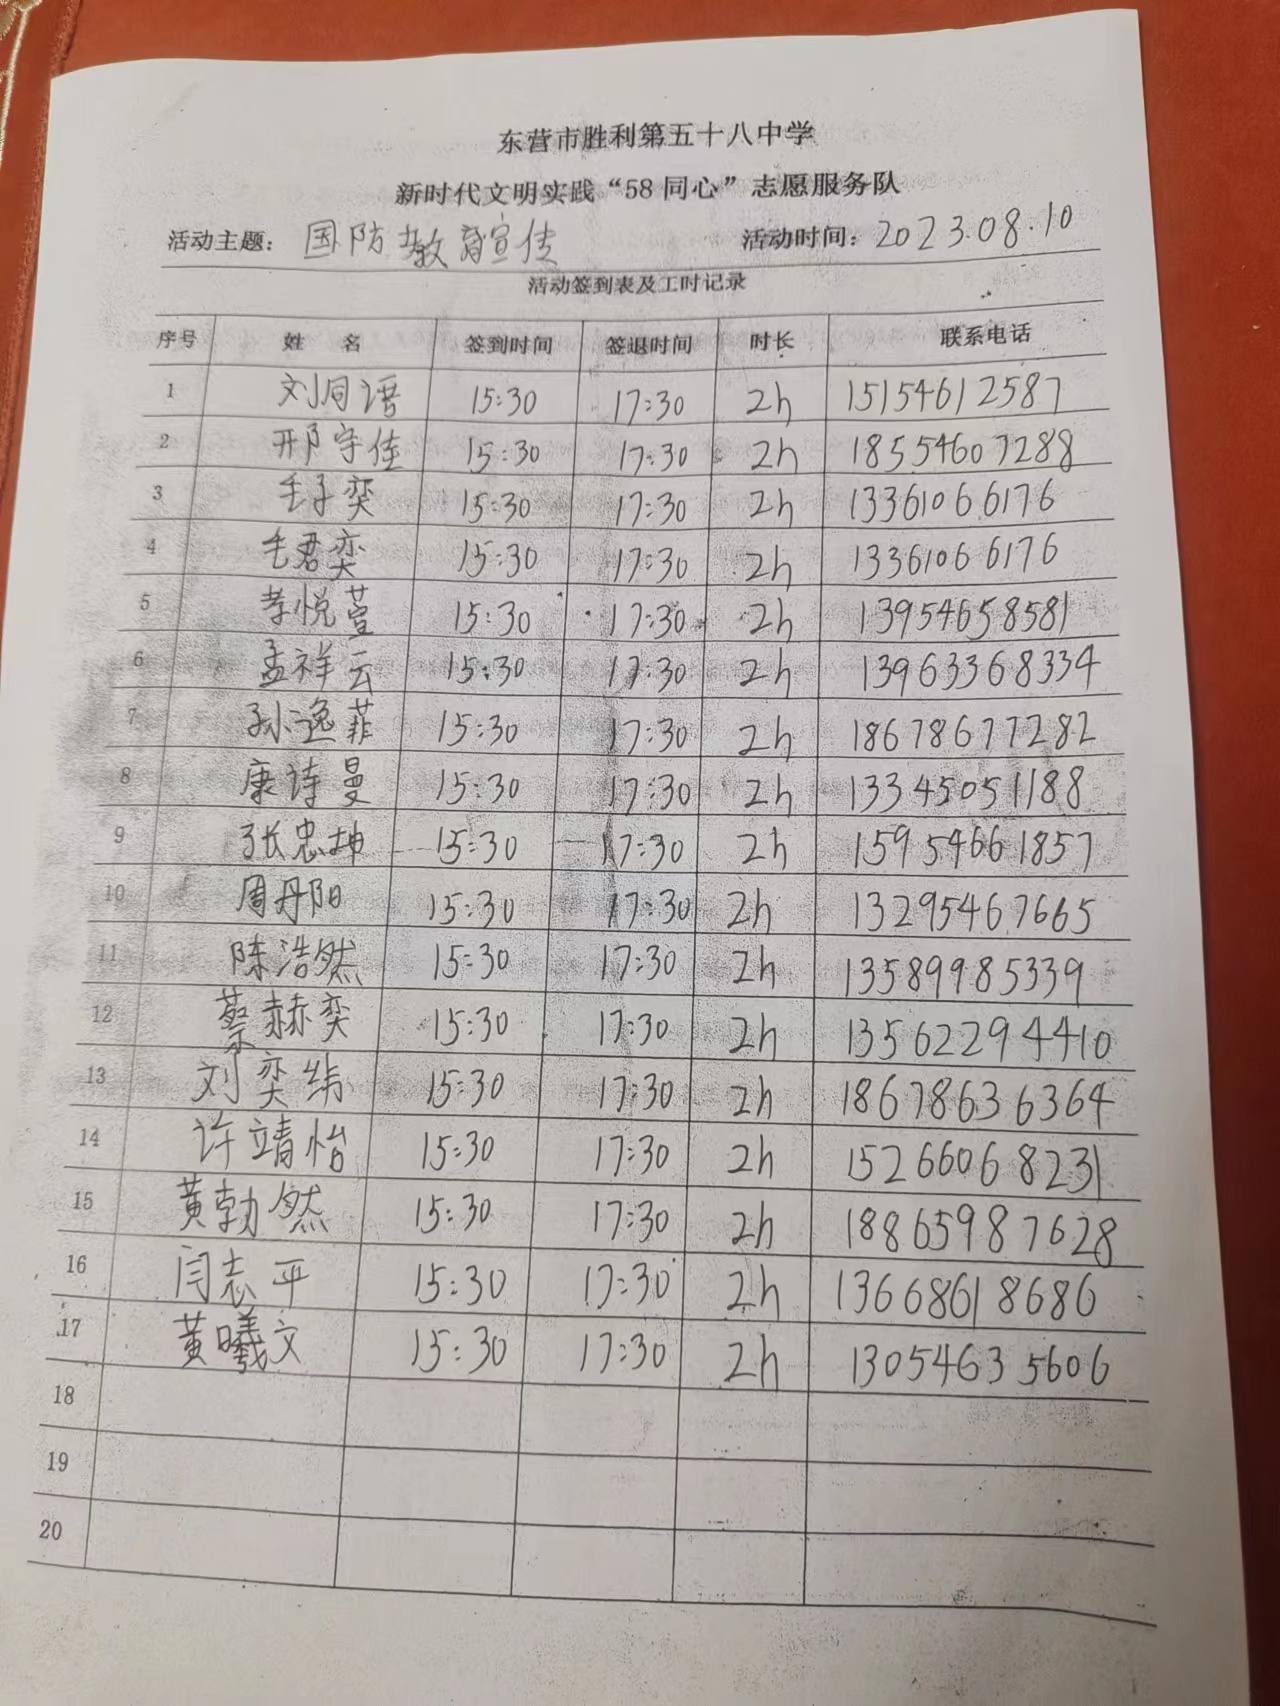 东营市胜利第五十八中学
新时代文明实践“58同心”志愿服务队
活动主题： 国防教育宣传 活动时间：2023.08.10
活动签到表及工时记录
序号 姓 名 签到时间 签退时间 时长 联系电话
1 刘同语 15:30 17:30 2h 15154612587
2 邢宇佳 15:30 17:30 2h 18554607288
3 毛子奕 15:30 17:30 2h 13361066176
4 毛君奕 15:30 17:30 2h 13361066176
5 李悦萱 15:30 17:30 2h 13954658581
6 孟祥云 15:30 17:30 2h 13963368334
7 孙逸菲 15:30 17:30 2h 18678677282
8 康诗曼 15:30 17:30 2h 13345051188
9 张忠坤 15:30 17:30 2h 15954661857
10 周丹阳 15:30 17:30 2h 13295467665
11 陈浩然 15:30 17:30 2h 13589985339
12 蔡赫奕 15:30 17:30 2h 13562294410
13 刘奕纬 15:30 17:30 2h 18678636364
14 许靖怡 15:30 17:30 2h 15266068231
15 黄勃然 15:30 17:30 2h 18865987628
16 闫志平 15:30 17:30 2h 13668618686
17 黄曦文 15:30 17:30 2h 13054635606
18
19
20